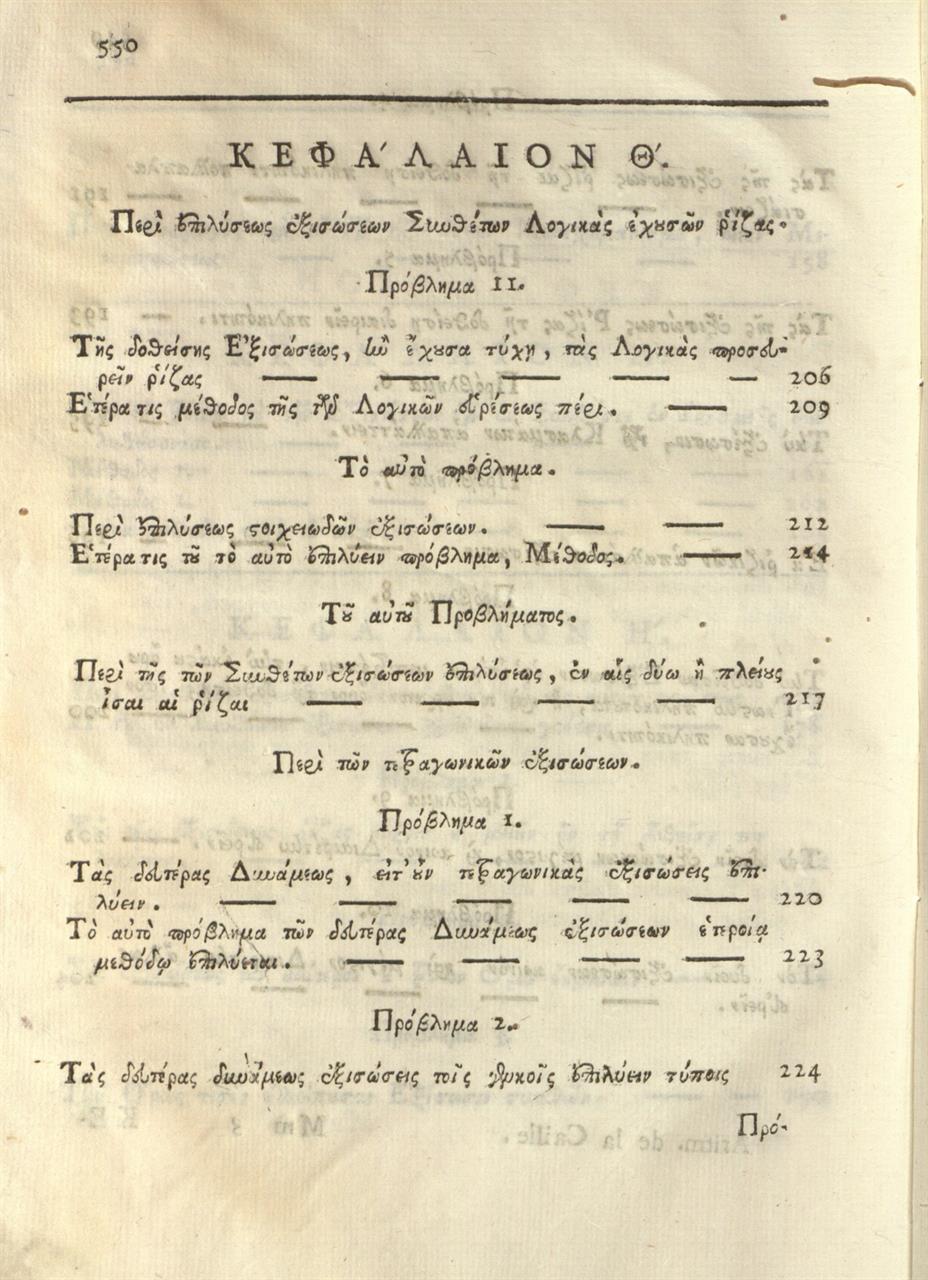 550
ΚΕΦΑ΄ΛΑΙΟΝ Θ΄.
Περὶ ἐπιλύσεως ἐξισώσεων Συνθέτων Λογικὰς ἐχουσῶν ῥίζας.
Πρόβλημα 11.
Τῆς δοθείσης Ἐξισώσεως, ἣν ἔχουσα τύχῃ, τὰς Λογικὰς προσευ-
ρεῖν ῥίζας — — — — — 206
Ἑτέρα τις μέθοδος τῆς τῶν Λογικῶν εὑρέσεως πέρι. — 209
Τὸ αὐτὸ πρόβλημα.
Περὶ ἐπιλύσεως στοιχειωδῶν ἐξισώσεων. — — 212
Ἑτέρα τις τοῦ τὸ αὐτὸ ἐπιλύειν πρόβλημα, Μέθοδος. — 214
Τοῦ αὐτοῦ Προβλήματος.
Περὶ τῆς τῶν Συνθέτων ἐξισώσεων ἐπιλύσεως, ἐν αἷς δύω ἢ πλείους
ἶσαι αἱ ῥίζαι — — — — 217
Περὶ τῶν τετραγωνικῶν ἐξισώσεων.
Πρόβλημα 1.
Τὰς δευτέρας Δυνάμεως, εἴτ' οὖν τετραγωνικὰς ἐξισώσεις ἐπι-
λύειν. — — — — — 220
Τὸ αὐτὸ πρόβλημα τῶν δευτέρας Δυνάμεως ἐξισώσεων ἑτεροίᾳ
μεθόδῳ ἐπιλύεται. — — — — 223
Πρόβλημα 2.
Τὰς δευτέρας δυνάμεως ἐξισώσεις τοῖς γενικοῖς ἐπιλύειν τύποις 224
Πρό-